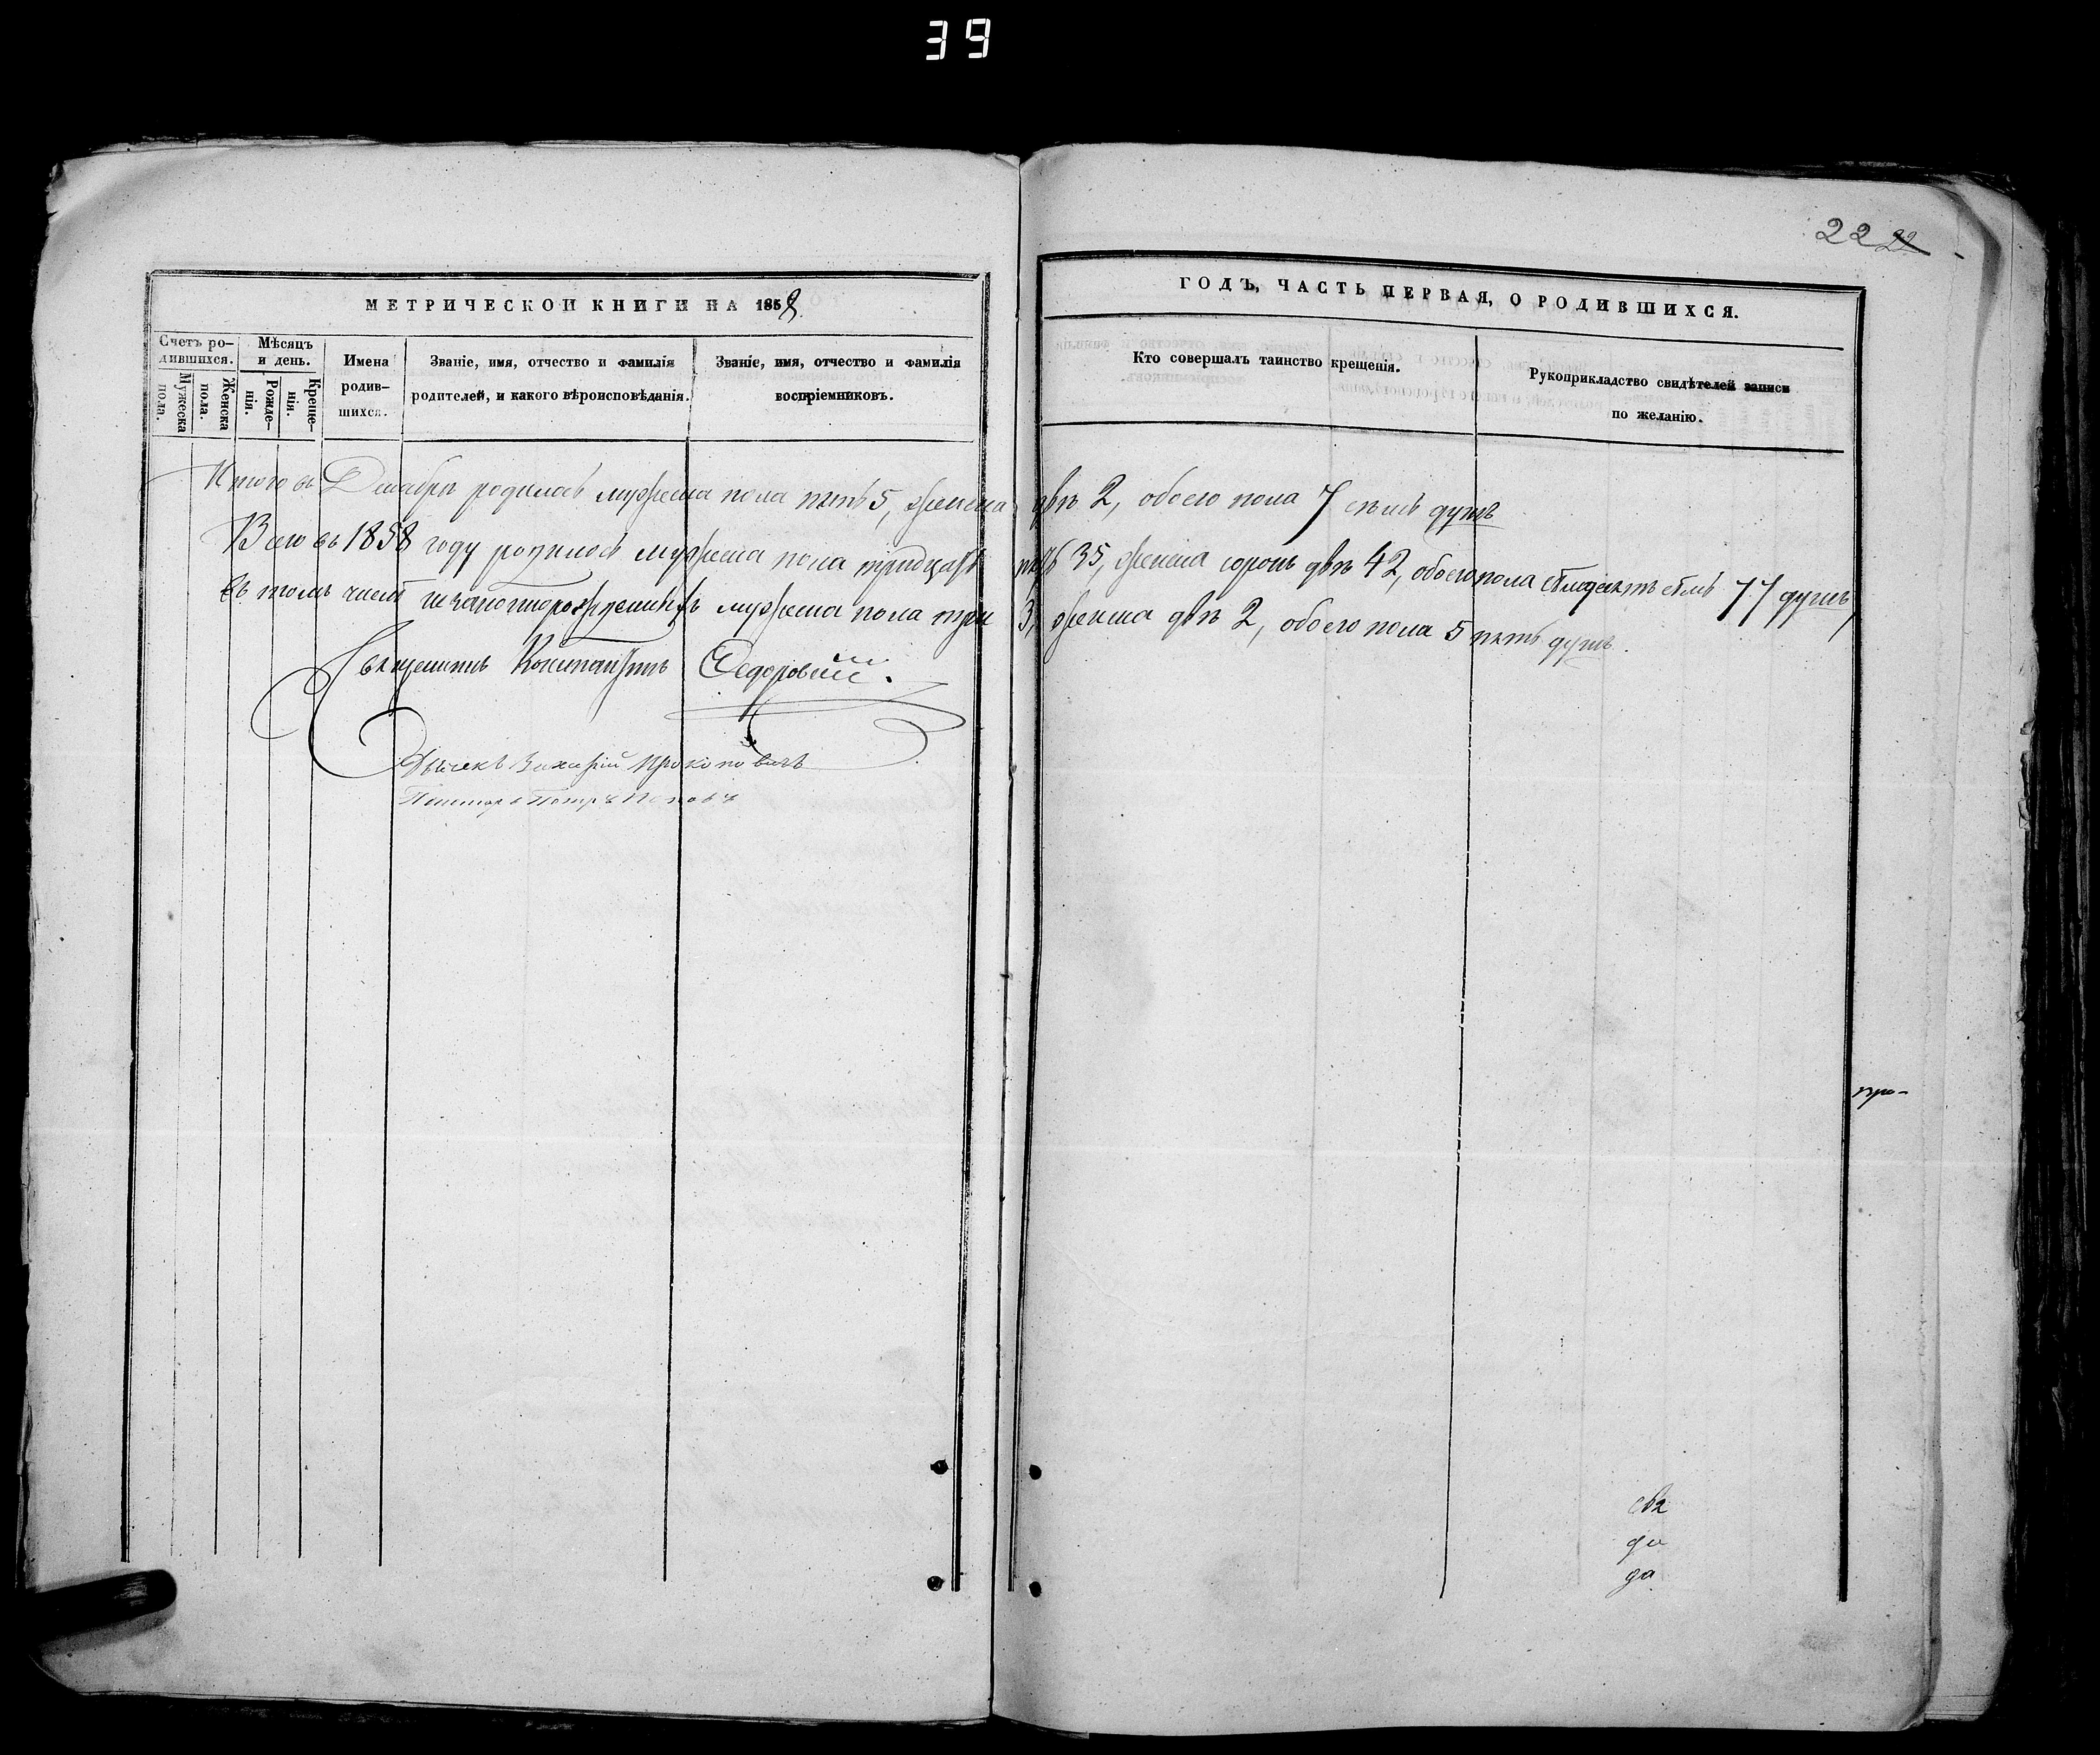 39
22 22
МЕТРИЧЕСКОЙ КНИГИ НА 1858
ГОДЪ, ЧАСТЬ ПЕРВАЯ, О РОДИВШИХСЯ.
Счетъ ро-
дившихся.
Мужеска
пола.
Женска
пола.
Мѣсяцъ
и день.
Рожде-
нія.
Креще-
нія.
Имена
родив-
шихся.
Званіе, имя, отчество и фамилія
родителей, и какого вѣроисповѣданія.
Званіе, имя, отчество и фамилія
воспріемниковъ.
Кто совершалъ таинство крещенія.
Рукоприкладство свидѣтелей записи
по желанію.
Итого въ Декабрѣ родилось мужеска пола пять 5, женска двѣ 2, обоего пола 7 семь душъ
Всего въ 1858 году родилось мужеска пола тридцать пять 35, женска сорокъ двѣ 42, обоего пола семдесятъ семь 77 душъ,
въ томъ числѣ незаконнорожденныхъ мужеска пола три 3, женска двѣ 2, обоего пола 5 пять душъ.
Священникъ Константинъ Федоровскій.
Дьячекъ Захарій Прокоповичъ
Пономарь Петръ Поповъ
про-
свя
да